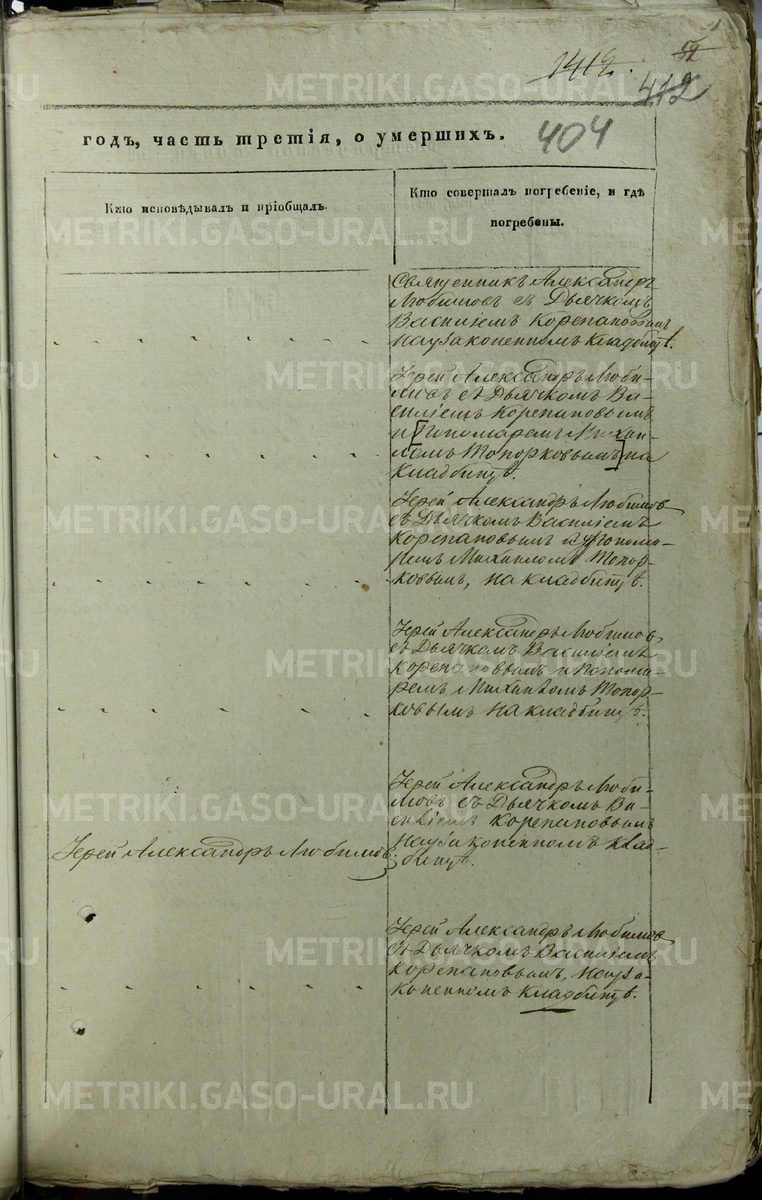 1412.
412
404
годъ, часть третія, о умершихъ.
Кто исповѣдывалъ и пріобщалъ.
Кто совершалъ погребеніе, и гдѣ
погребены.
Священникъ Александръ
Любимовъ съ Дьячкомъ
Василіемъ Корепановымъ
на узаконенномъ кладбищѣ.
Іерей Александръ Люби-
мовъ съ Дьячкомъ Ва-
силіемъ Корепановымъ
и [Пономаремъ Михаи-
ломъ Топорковымъ] на
кладбищѣ.
Іерей Александръ Любимовъ
съ Дьячкомъ Василіемъ
Корепановымъ и Понома-
ремъ Михаиломъ Топор-
ковымъ, на кладбищѣ.
Іерей Александръ Любимовъ
съ Дьячкомъ Василіемъ
Корепановымъ и Понома-
ремъ Михаиломъ Топор-
ковымъ на кладбищѣ.
Іерей Александръ Любимовъ.
Іерей Александръ Люби-
мовъ съ Дьячкомъ Ва-
силіемъ Корепановымъ
на узаконенномъ клад-
бищѣ.
Іерей Александръ Любимовъ
съ Дьячкомъ Василіемъ
Корепановымъ, на уза-
коненномъ кладбищѣ.
METRIKI.GASO-URAL.RU